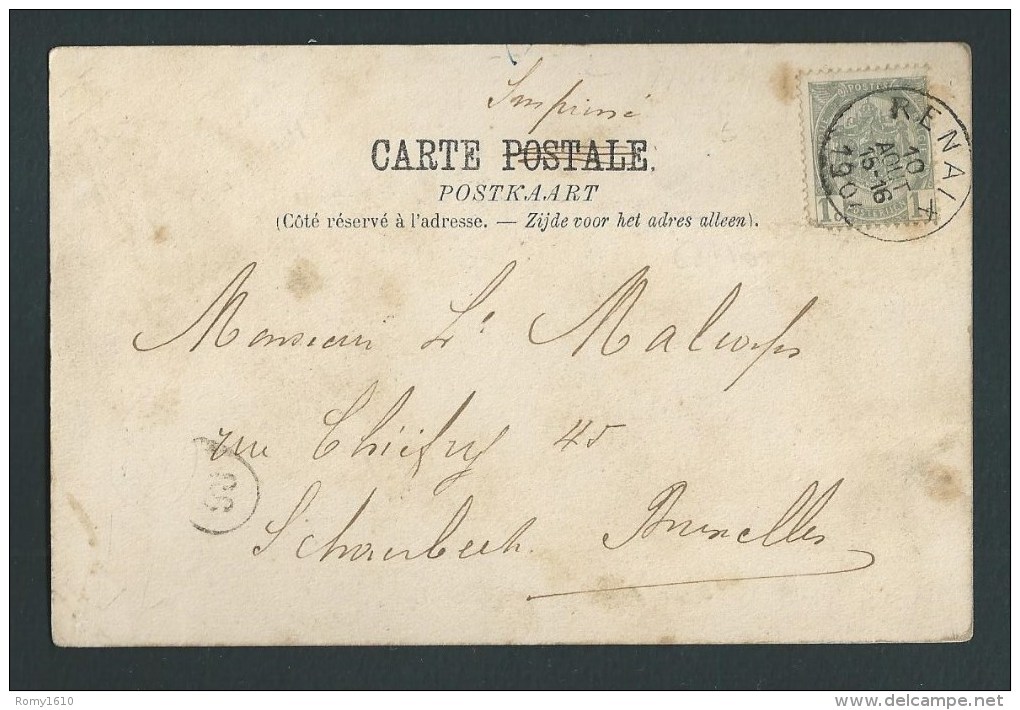 Imprimé
CARTE POSTALE.
POSTKAART
(Côté réservé à l'adresse. — Zijde voor het adres alleen).
POSTES
1c 1c
RENAIX
10
AOUT
15-16
1901
Monsieur
rue 45
Schaerbeek. Bruxelles
Romy1610
delcampe.net